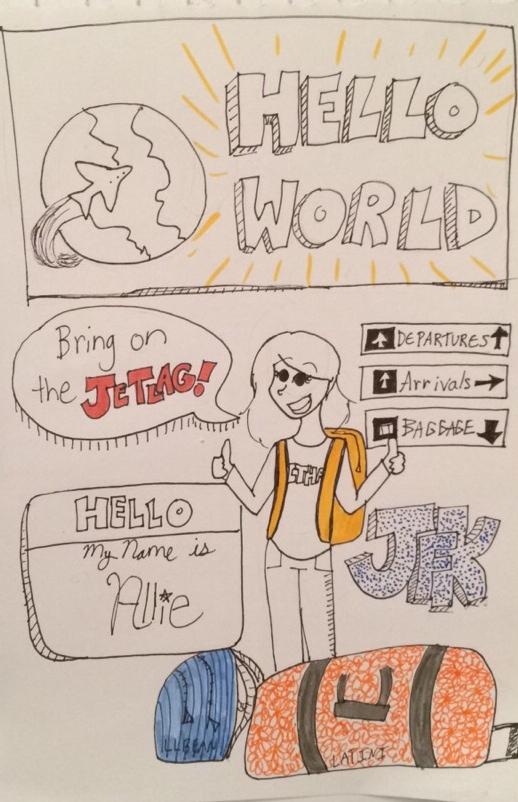 HELLO
WORLD
Bring on
the JETLAG!
DEPARTURES
Arrivals
BAGGAGE
ETHA
HELLO
My Name is
Allie
JFK
LLBEAN
LATINI